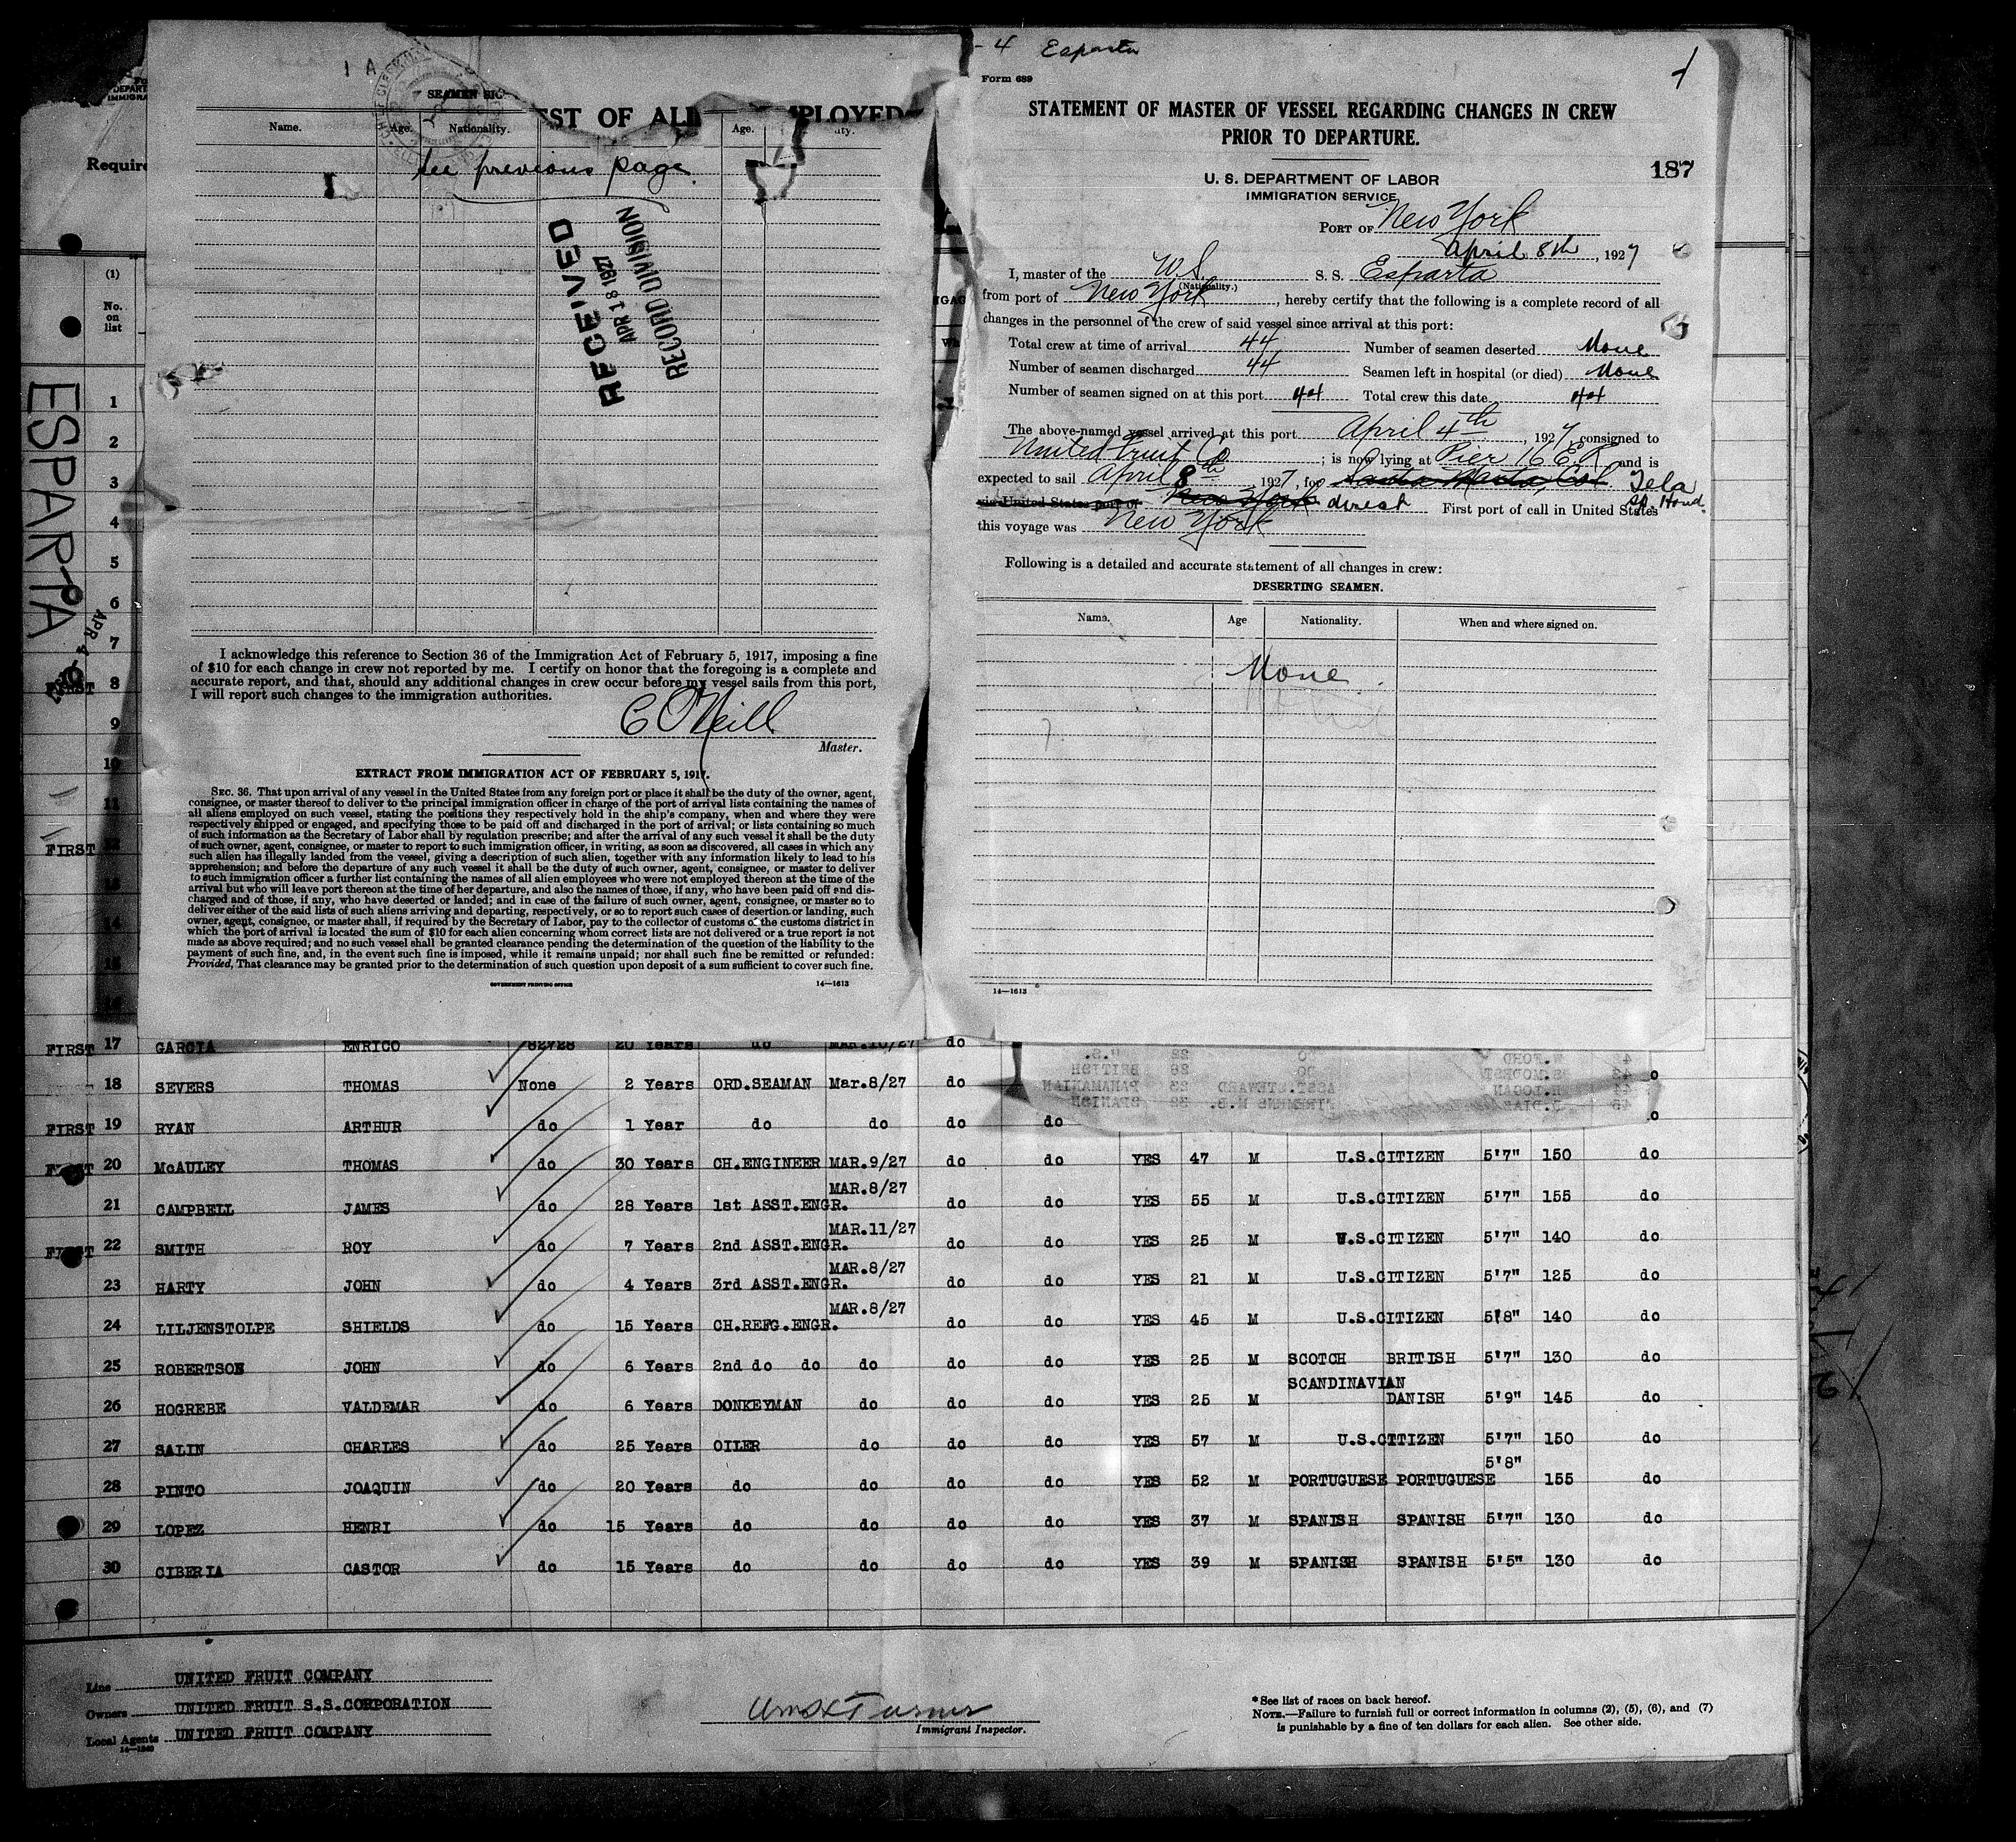 DEPART
IMMIGRA
Require
(1)
No.
on
list
ESPARTA
1
2
3
4
5
6
7
FIRST 8
9
10
11
FIRST 12
13
14
15
16
1 A
SEAMEN SIG
ST OF ALI
PLOYED
Name. Age. Nationality. Age.
See previous page.
RECEIVED
APR 18 1927
RECORD DIVISION
I acknowledge this reference to Section 36 of the Immigration Act of February 5, 1917, imposing a fine
of $10 for each change in crew not reported by me. I certify on honor that the foregoing is a complete and
accurate report, and that, should any additional changes in crew occur before my vessel sails from this port,
I will report such changes to the immigration authorities.
C O'Neill
Master.
EXTRACT FROM IMMIGRATION ACT OF FEBRUARY 5, 1917.
SEC. 36. That upon arrival of any vessel in the United States from any foreign port or place it shall be the duty of the owner, agent,
consignee, or master thereof to deliver to the principal immigration officer in charge of the port of arrival lists containing the names of
all aliens employed on such vessel, stating the positions they respectively hold in the ship's company, when and where they were
respectively shipped or engaged, and specifying those to be paid off and discharged in the port of arrival; or lists containing so much
of such information as the Secretary of Labor shall by regulation prescribe; and after the arrival of any such vessel it shall be the duty
of such owner, agent, consignee, or master to report to such immigration officer, in writing, as soon as discovered, all cases in which any
such alien has illegally landed from the vessel, giving a description of such alien, together with any information likely to lead to his
apprehension; and before the departure of any such vessel it shall be the duty of such owner, agent, consignee, or master to deliver
to such immigration officer a further list containing the names of all alien employees who were not employed thereon at the time of the
arrival but who will leave port thereon at the time of her departure, and also the names of those, if any, who have been paid off and dis-
charged and of those, if any, who have deserted or landed; and in case of the failure of such owner, agent, consignee, or master so to
deliver either of the said lists of such aliens arriving and departing, respectively, or so to report such cases of desertion or landing, such
owner, agent, consignee, or master shall, if required by the Secretary of Labor, pay to the collector of customs of the customs district in
which the port of arrival is located the sum of $10 for each alien concerning whom correct lists are not delivered or a true report is not
made as above required; and no such vessel shall be granted clearance pending the determination of the question of the liability to the
payment of such fine, and, in the event such fine is imposed, while it remains unpaid; nor shall such fine be remitted or refunded:
Provided, That clearance may be granted prior to the determination of such question upon deposit of a sum sufficient to cover such fine.
GOVERNMENT PRINTING OFFICE 14—1613
- 4 Esparta
Form 689
STATEMENT OF MASTER OF VESSEL REGARDING CHANGES IN CREW
PRIOR TO DEPARTURE.
187
U. S. DEPARTMENT OF LABOR
IMMIGRATION SERVICE
PORT OF New York
April 8th, 1927
I, master of the U.S. S. S. Esparta
(Nationality.)
from port of New York, hereby certify that the following is a complete record of all
changes in the personnel of the crew of said vessel since arrival at this port:
Total crew at time of arrival 44 Number of seamen deserted None
Number of seamen discharged 44 Seamen left in hospital (or died) None
Number of seamen signed on at this port 44 Total crew this date 44
The above-named vessel arrived at this port April 4th, 1927, consigned to
United Fruit Co; is now lying at Pier 16 E.R. and is
expected to sail April 8th 1927, for Santa Marta, Col. Tela
via United States port of New York direct First port of call in United States Sp. Hond.
this voyage was New York
Following is a detailed and accurate statement of all changes in crew:
DESERTING SEAMEN.
Name. Age Nationality. When and where signed on.
None
14—1613
FIRST 17 GARCIA ENRICO 82728 20 Years do MAR.10/27 do
18 SEVERS THOMAS None 2 Years ORD.SEAMAN Mar.8/27 do
FIRST 19 RYAN ARTHUR do 1 Year do do do do
FIRST 20 McAULEY THOMAS do 30 Years CH.ENGINEER MAR.9/27 do do YES 47 M U.S.CITIZEN 5'7" 150 do
21 CAMPBELL JAMES do 28 Years 1st ASST.ENGR. MAR.8/27 do do YES 55 M U.S.CITIZEN 5'7" 155 do
FIRST 22 SMITH ROY do 7 Years 2nd ASST.ENGR. MAR.11/27 do do YES 25 M U.S.CITIZEN 5'7" 140 do
23 HARTY JOHN do 4 Years 3rd ASST.ENGR. MAR.8/27 do do YES 21 M U.S.CITIZEN 5'7" 125 do
24 LILJENSTOLPE SHIELDS do 15 Years CH.REFG.ENGR. MAR.8/27 do do YES 45 M U.S.CITIZEN 5'8" 140 do
25 ROBERTSON JOHN do 6 Years 2nd do do do do do YES 25 M SCOTCH BRITISH 5'7" 130 do
26 HOGREBE VALDEMAR do 6 Years DONKEYMAN do do do YES 25 M SCANDINAVIAN DANISH 5'9" 145 do
27 SALIN CHARLES do 25 Years OILER do do do YES 57 M U.S.CTTIZEN 5'7" 150 do
28 PINTO JOAQUIN do 20 Years do do do do YES 52 M PORTUGUESE PORTUGUESE 5'8" 155 do
29 LOPEZ HENRI do 15 Years do do do do YES 37 M SPANISH SPANISH 5'7" 130 do
30 CIBERIA CASTOR do 15 Years do do do do YES 39 M SPANISH SPANISH 5'5" 130 do
Line UNITED FRUIT COMPANY
Owners UNITED FRUIT S.S.CORPORATION
Local Agents UNITED FRUIT COMPANY
Immigrant Inspector.
*See list of races on back hereof.
NOTE.—Failure to furnish full or correct information in columns (2), (5), (6), and (7)
is punishable by a fine of ten dollars for each alien. See other side.